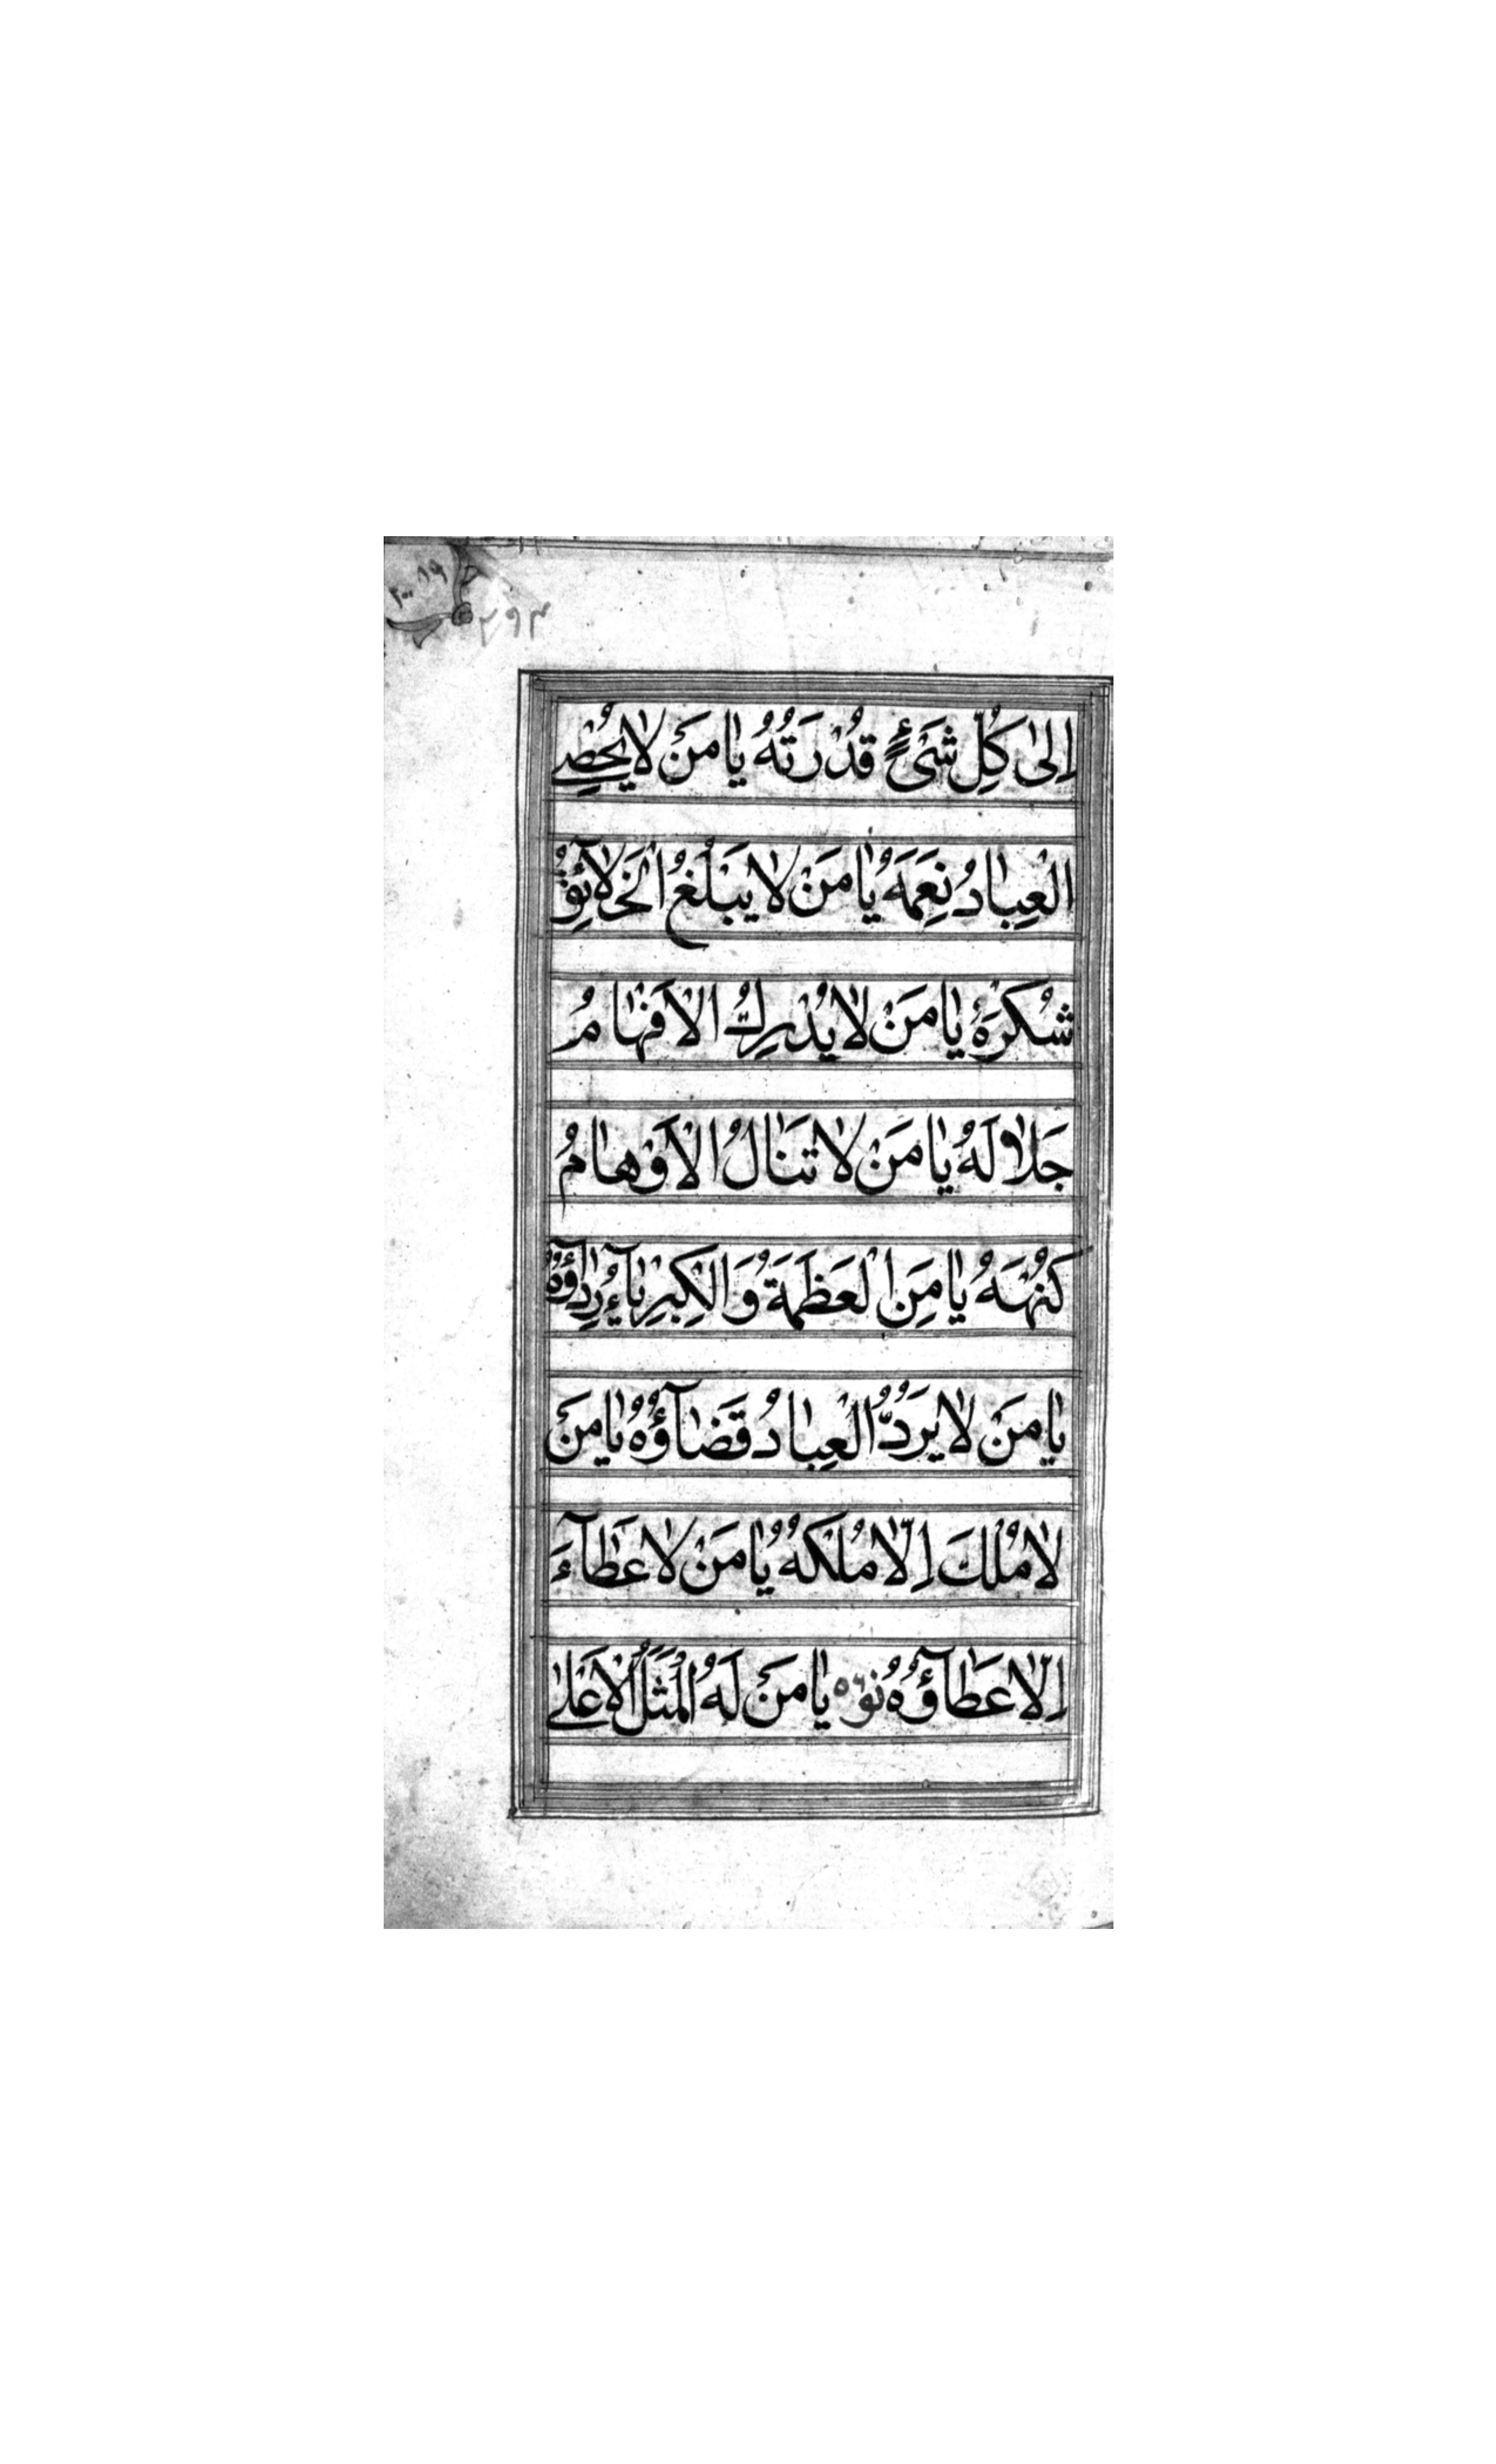 اِلىٰ كُلِّ شَیْءٍ قُدْرَتُهُ يٰا مَنْ لاٰ يُحْصِے
الْعِبٰادُ نِعَمَهُ يٰا مَنْ لاٰ يَبْلُغُ الْخَلآٰئِقُ
شُكْرَهُ يٰا مَنْ لاٰ يُدْرِكُ الْاَفْهٰامُ
جَلاٰلَهُ يٰا مَنْ لاٰ تَنٰالُ الْاَوْهٰامُ
كُنْهَهُ يٰا مَنِ الْعَظَمَةُ وَالْكِبْرِيٰآءُ رِدٰآؤُهُ
يٰا مَنْ لاٰ يَرُدُّ الْعِبٰادُ قَضٰآؤُهُ يٰا مَنْ
لاٰ مُلْكَ اِلّاٰ مُلْكَهُ يٰا مَنْ لاٰ عَطٰآءَ
اِلّاٰ عَطٰآؤُهُ يٰا مَنْ لَهُ الْمَثَلُ الْاَعْلىٰ